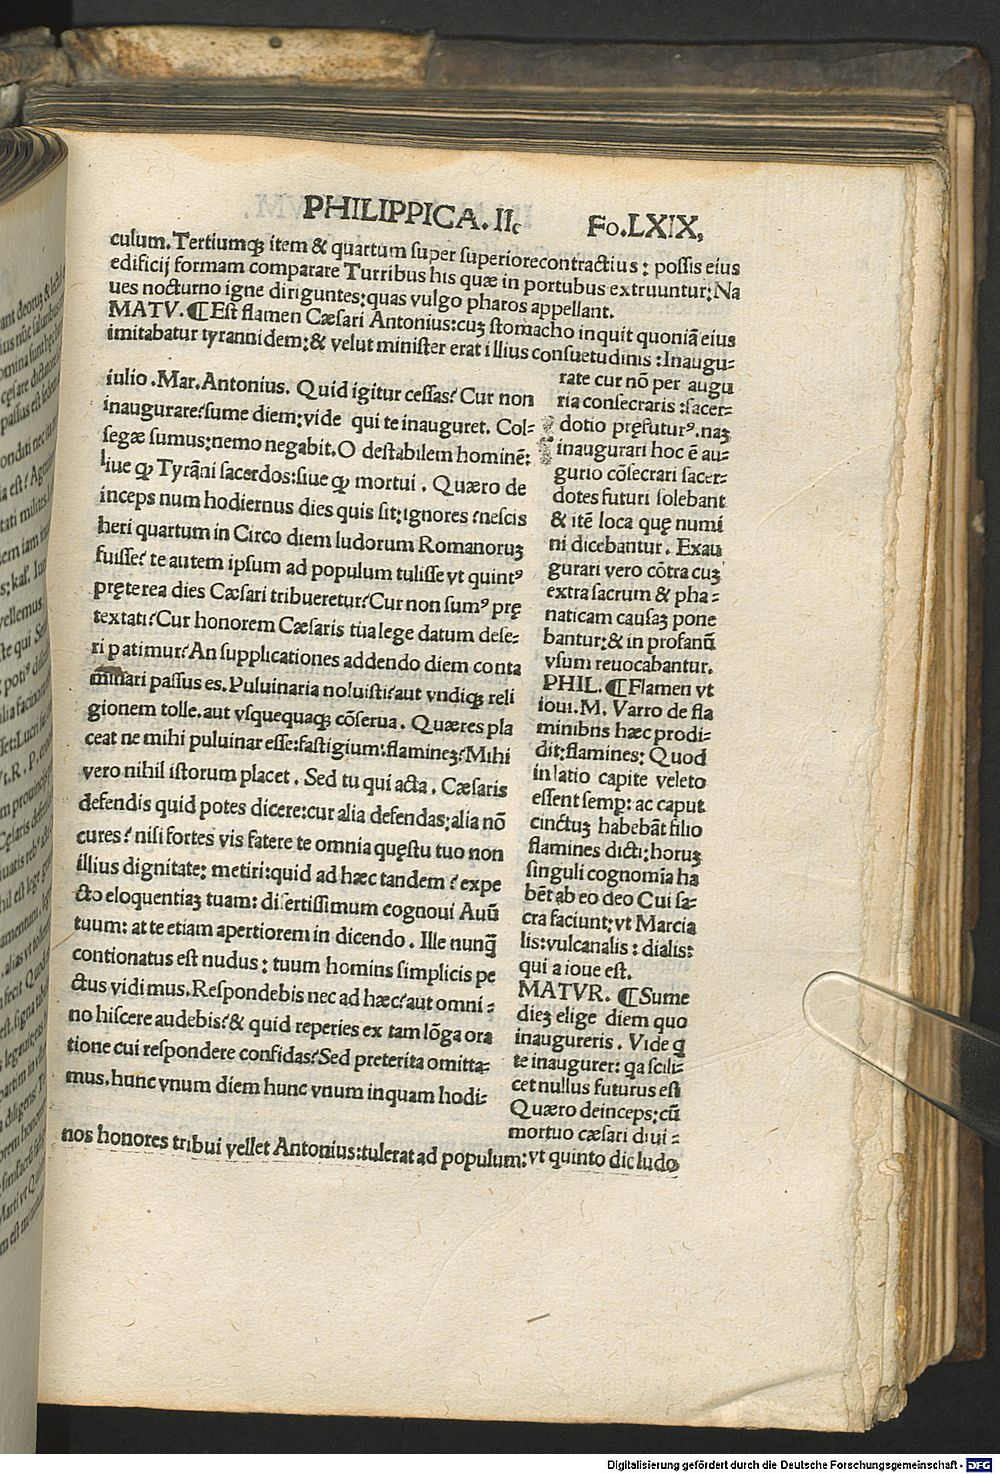 PHILIPPICA. II. Fo. LXIX,
culum. Tertiumqꝫ item & quartum super superiore contractius: possis eius
edificij formam comparare Turribus his quæ in portubus extruuntur: Na
ues nocturno igne diriguntes: quas vulgo pharos appellant.
MATV. ¶ Est flamen Cæsari Antonius: cuꝫ stomacho inquit quoniã eius
imitabatur tyrannidem: & velut minister erat illius consuetudinis: Inaugu-
iulio. Mar. Antonius. Quid igitur cessas? Cur non
inaugurare? sume diem: vide qui te inauguret. Col-
legæ sumus: nemo negabit. O destabilem hominẽ:
siue ꝙ Tyrãni sacerdos: siue ꝙ mortui. Quæro de
inceps num hodiernus dies quis sit: ignores? nescis
heri quartum in Circo diem ludorum Romanoruꝫ
fuisse? te autem ipsum ad populum tulisse vt quintꝰ
pręterea dies Cæsari tribueretur? Cur non sumꝰ prę
textati? Cur honorem Cæsaris tua lege datum dese-
ri patimur? An supplicationes addendo diem conta
minari passus es. Puluinaria noluisti? aut vndiqꝫ reli
gionem tolle. aut vsquequaqꝫ cõserua. Quæres pla
ceat ne mihi puluinar esse: fastigium: flamineꝫ? Mihi
vero nihil istorum placet. Sed tu qui acta. Cæsaris
defendis quid potes dicere: cur alia defendas: alia nõ
cures? nisi fortes vis fatere te omnia quęstu tuo non
illius dignitate: metiri: quid ad hæc tandem? expe
cto eloquentiaꝫ tuam: disertissimum cognoui Auũ
tuum: at te etiam apertiorem in dicendo. Ille nunq̃
contionatus est nudus: tuum hominis simplicis pe
ctus vidimus. Respondebis nec ad hæc? aut omni-
no hiscere audebis? & quid reperies ex tam lõga ora
tione cui respondere confidas? Sed preterita omitta-
mus. hunc vnum diem hunc vnum inquam hodi-
rate cur nõ per augu
ria consecraris: sacer-
dotio pręfuturꝰ. naꝫ
inaugurari hoc ẽ au-
gurio cõsecrari sacer-
dotes futuri solebant
& itẽ loca quę numi
ni dicebantur. Exau
gurari vero cõtra cuꝫ
extra sacrum & pha-
naticam causaꝫ pone
bantur: & in profanũ
vsum reuocabantur.
PHIL. ¶ Flamen vt
ioui. M. Varro de fla
minibus hæc prodi-
dit: flamines: Quod
in latio capite veleto
essent semꝑ: ac caput
cinctuꝫ habebãt filio
flamines dicti: horuꝫ
singuli cognomĩa ha
bẽt ab eo deo Cui sa-
cra faciunt: vt Marcia
lis: vulcanalis: dialis:
qui a ioue est.
MATVR. ¶ Sume
dieꝫ elige diem quo
inaugureris. Vide q̃
te inaugurer: qa scili-
cet nullus futurus est
Quæro deinceps: cũ
mortuo cæsari diui-
nos honores tribui vellet Antonius: tulerat ad populum: vt quinto die ludo